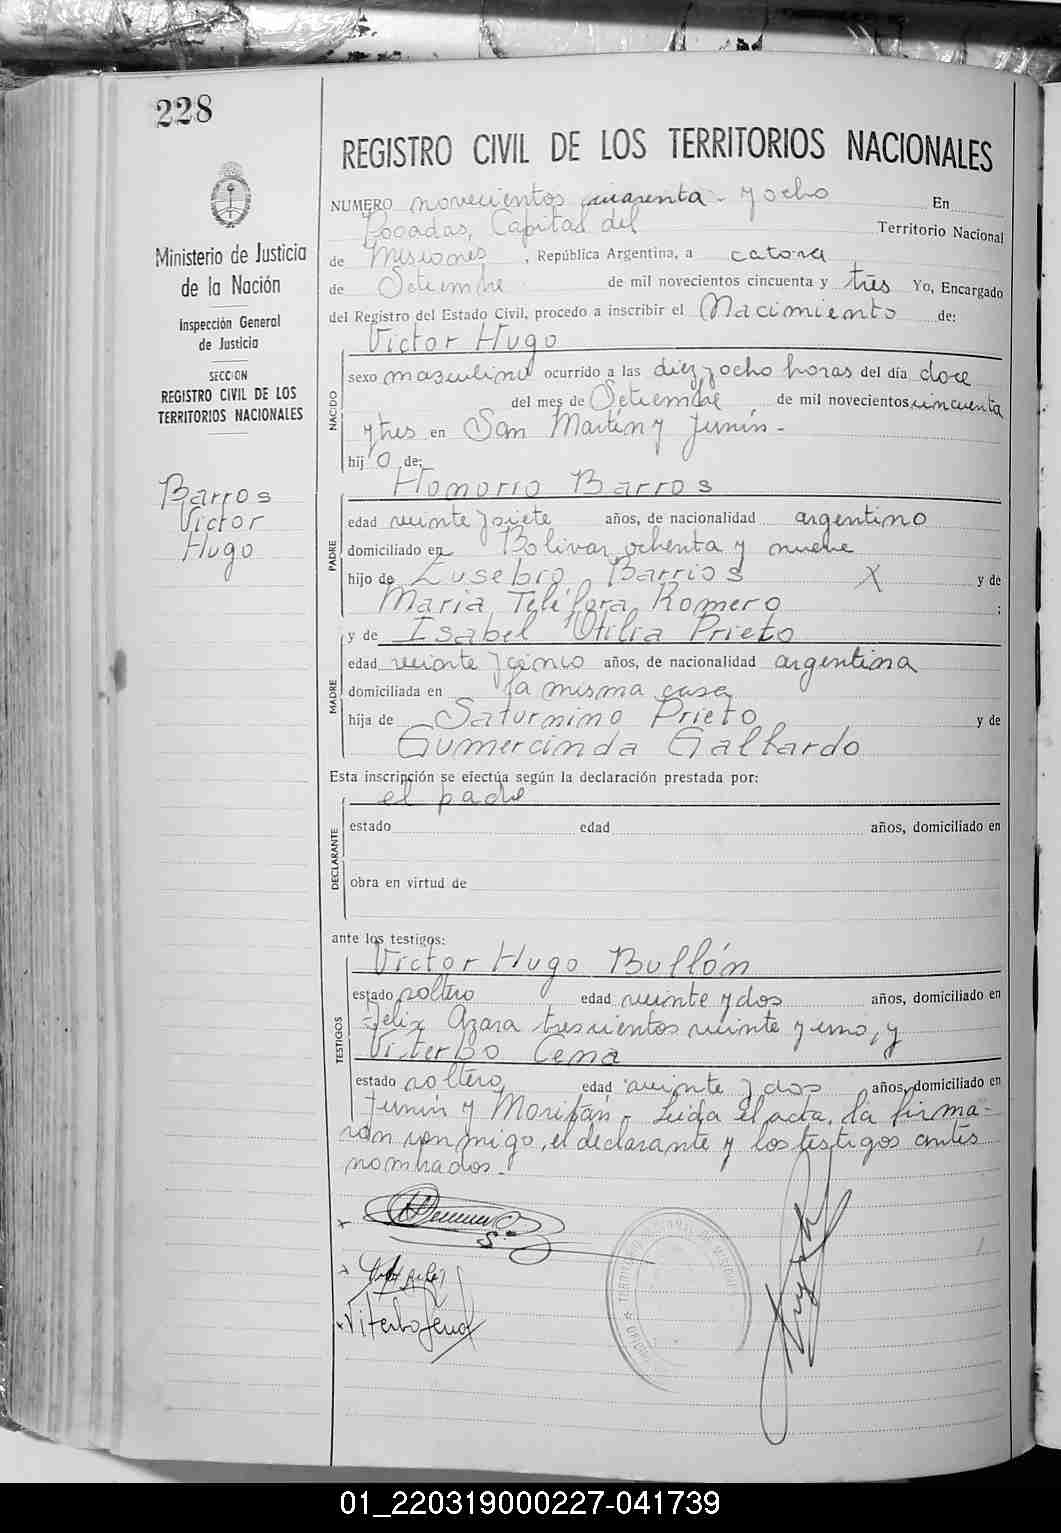 228
REGISTRO CIVIL DE LOS TERRITORIOS NACIONALES
Ministerio de Justicia
de la Nación
Inspección General
de Justicia
SECCION
REGISTRO CIVIL DE LOS
TERRITORIOS NACIONALES
Barros
Victor
Hugo
NUMERO novecientos cuarenta y ocho En
Posadas, Capital del Territorio Nacional
de Misiones, República Argentina, a catorce
de Setiembre de mil novecientos cincuenta y tres Yo, Encargado
del Registro del Estado Civil, procedo a inscribir el Nacimiento de:
Victor Hugo
NACIDO
sexo masculino ocurrido a las diez y ocho horas del día doce
del mes de Setiembre, de mil novecientos cincuenta
y tres en San Martín y Junín -
hijo de:
Honorio Barros
PADRE
edad veinte y siete años, de nacionalidad argentino
domiciliado en Bolivar ochenta y nueve
hijo de Eusebio Barrios X y de
Maria Telésfora Romero ;
y de Isabel Otilia Prieto
MADRE
edad veinte y cinco años, de nacionalidad argentina
domiciliada en la misma casa
hija de Saturnino Prieto y de
Gumercinda Gallardo
Esta inscripción se efectúa según la declaración prestada por:
el padre
DECLARANTE
estado edad años, domiciliado en
obra en virtud de
ante los testigos:
Victor Hugo Bullón
TESTIGOS
estado soltero edad veinte y dos años, domiciliado en
Felix Azara trescientos veinte y uno, y
Viterbo Cena
estado soltero, edad veinte y dos años, domiciliado en
Junín y - Leida el acta, la firma-
ron conmigo, el declarante y los testigos antes
nombrados.-
Viterbo Cena
01_220319000227-041739